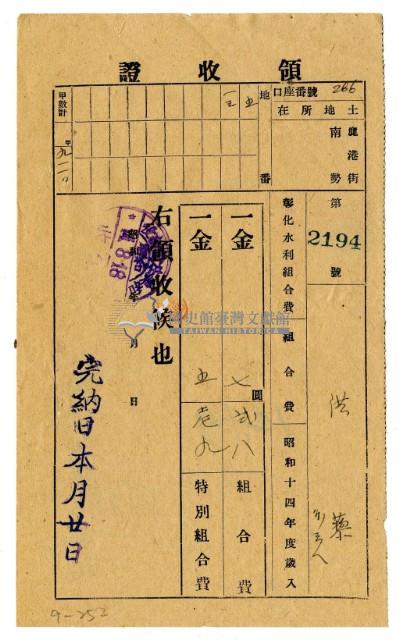 領收證
口座番號 266
土地所在
鹿港街
南勢
地番
甲數計
甲
第 2194 號
洪
彰化水利組合費
組合費
昭和十四年度歲入
一金
七圓
貳八
組合費
一金
五
壱九
特別組合費
右領收候也
月
日
8.18
完納日本月廿日
國史館臺灣文獻館
TAIWAN HISTORICA
9-252